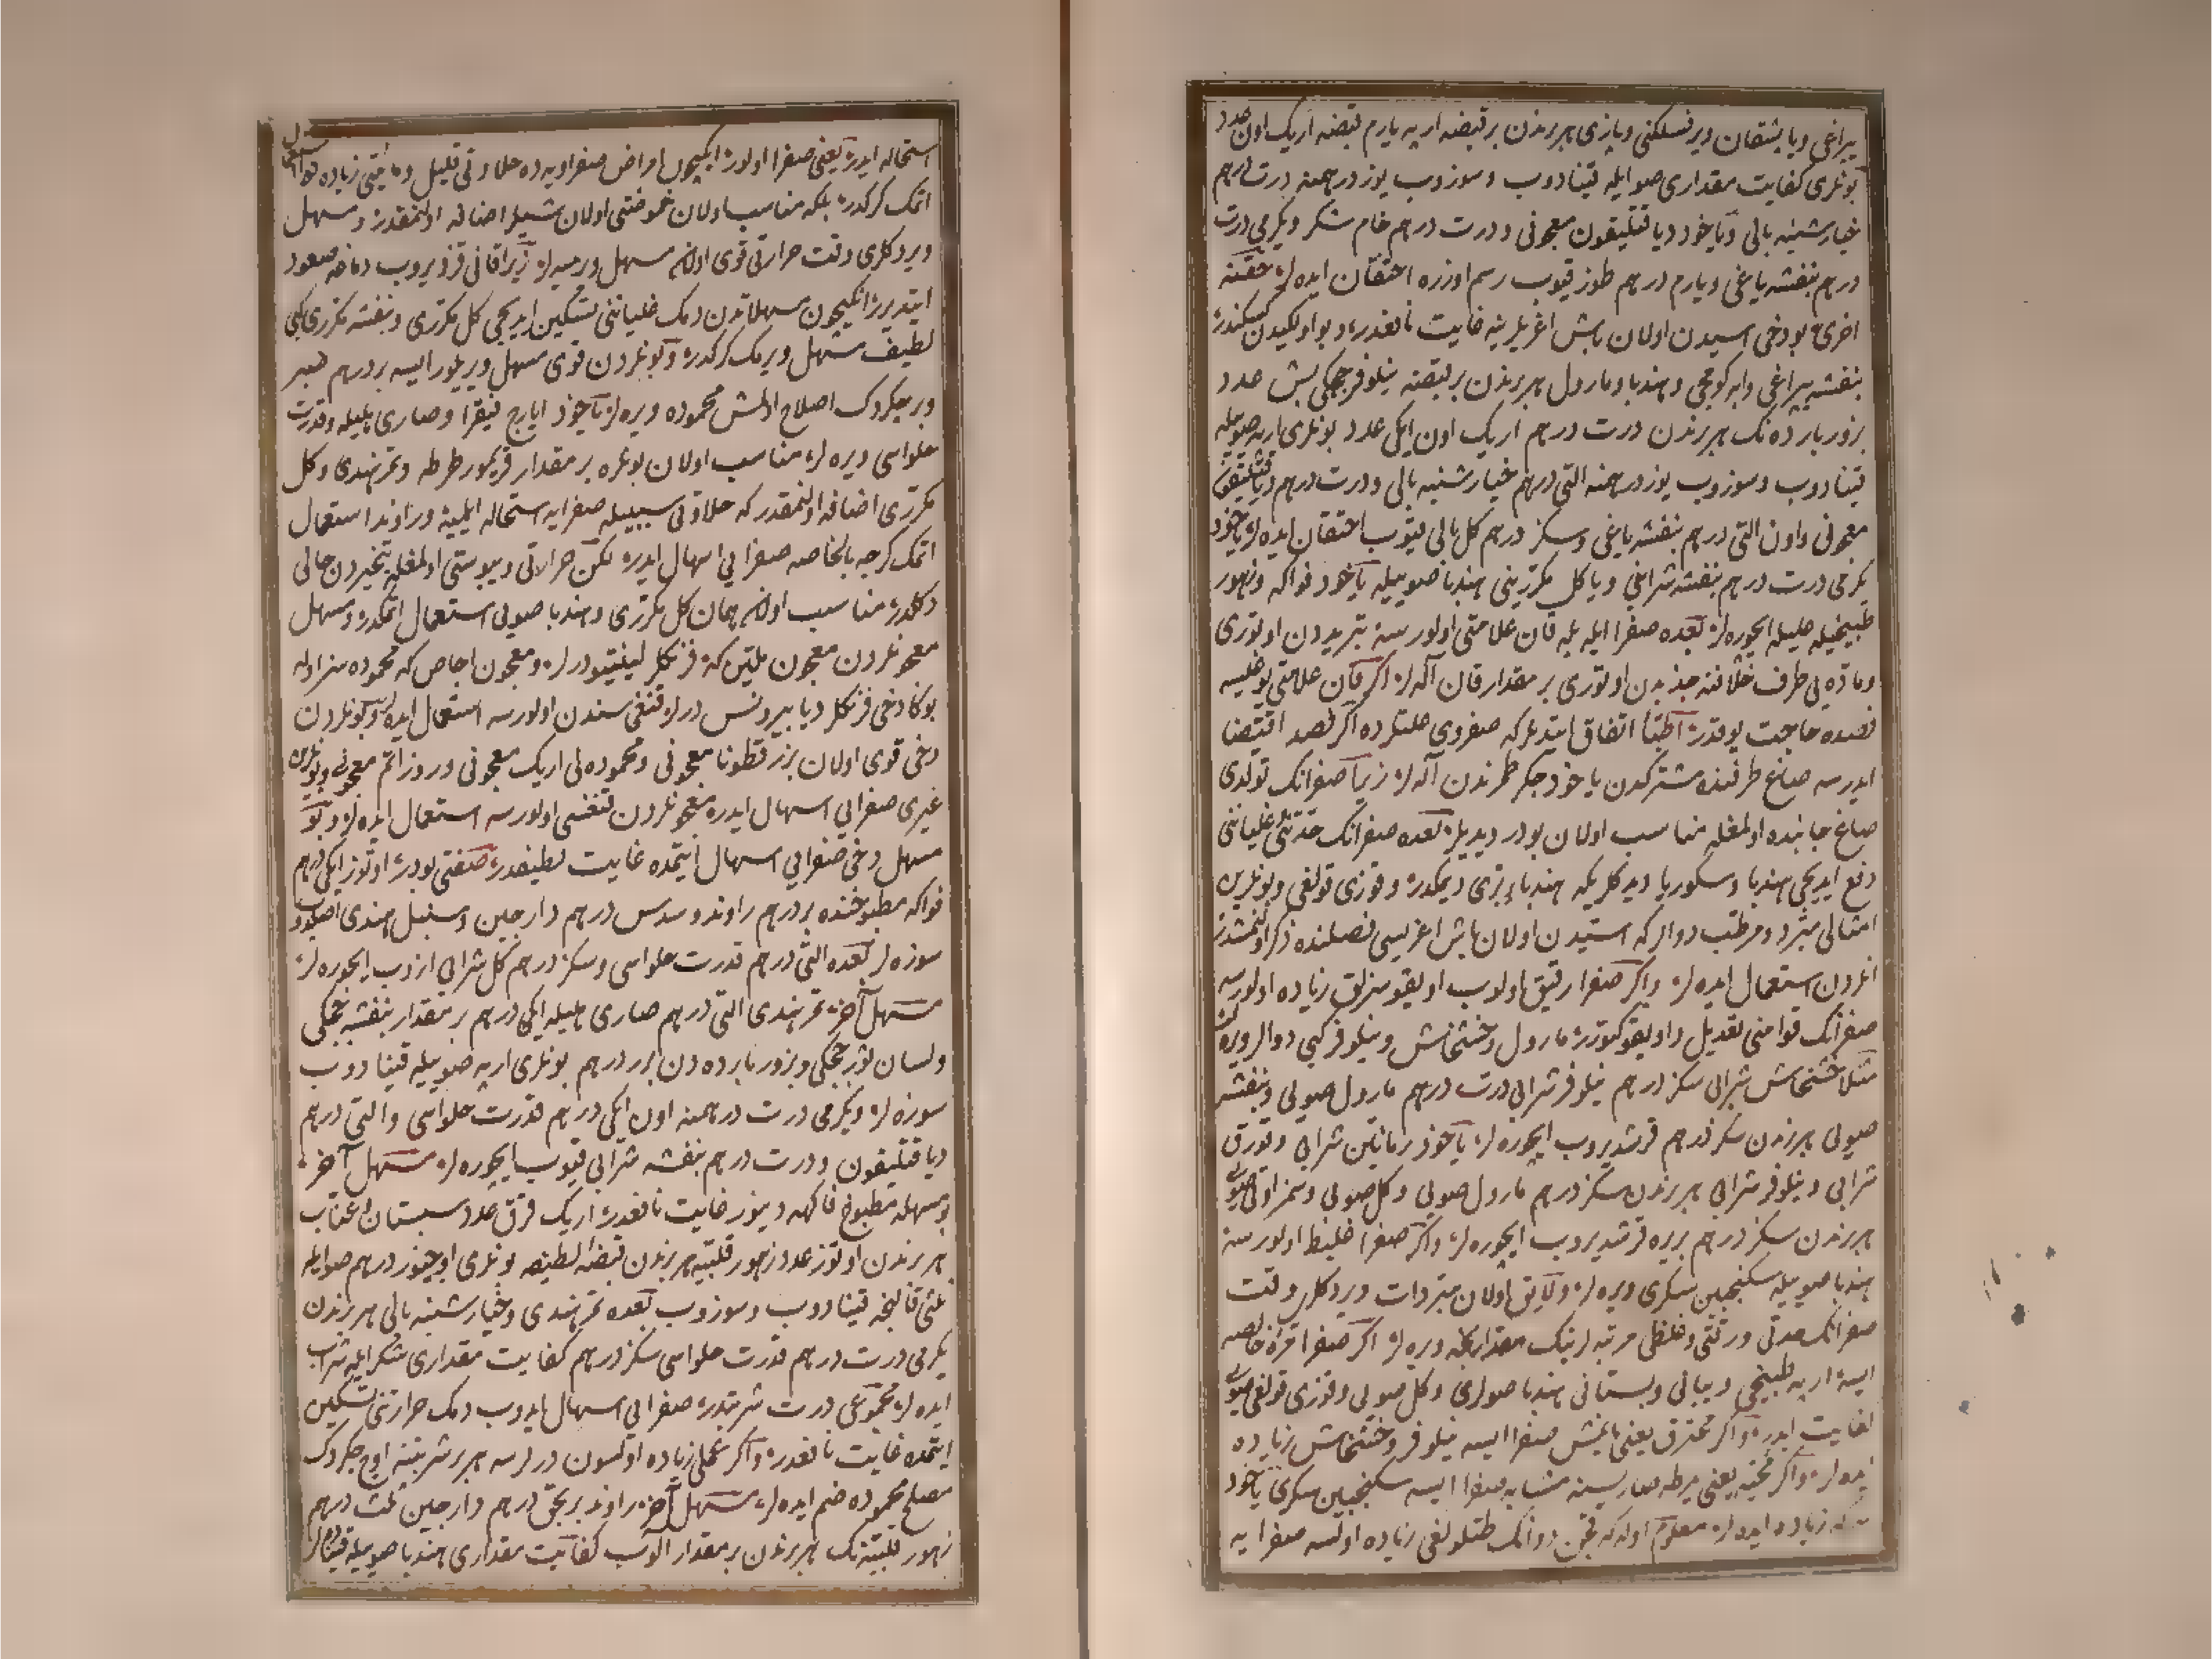 يپراغی ويا بشقان وير فسلكنی ويازی هر برندن بر قبضه ارپه يارم قبضه اريك اون عدد
بونلری كفايت مقداری صو ايله قينادوب و سوزوب يوز درهمنه درت درهم
خيارشنبه بالی و ياخود ديا قتليقون معجونی و درت درهم خام شكر و يكرمی درت
درهم بنفشه ياغی و يارم درهم طوز قيوب رسم اوزره احتقان ايده لر حقنه
اخری بو دخی اسيدن اولان باش اغريلرينه غايت نافعدر و بو اولكيدن
بنفشه يپراغی و ابه كومجی و هندبا و مارول هر برندن بر قبضه نيلوفر چچكی بش عدد
بزور بارده نك هر برندن درت درهم اريك اون ايكی عدد بونلری ارپه صويله
قينادوب و سوزوب يوز درهمنه التی درهم خيارشنبه بالی و درت درهم ديا قتليقون
معجونی و اون التی درهم بنفشه ياغی و سكز درهم كل بالی قيوب احتقان ايده لر ياخود
يكرمی درت درهم بنفشه شرابنی و يا كل مكررينی هندبا صويله ياخود فواكه و زهور
طبيخيله حليله ايچوره لر بعده صفرا ايله بله قان علامتی اولورسه تبريددن اوتوری
و ماده يی طرف خلافنه جذبدن اوتوری بر مقدار قان آله لر اكر قان علامتی يوغيسه
فصده حاجت يوقدر اطبا اتفاق ايتديلر كه صفروی علتلرده اكر فصد اقتضا
ايدرسه صاغ طرفنده مشتركدن ياخود جكر طمرندن آله لر زيرا صفرانك تولدی
صاغ جانبده اولمغله مناسب اولان بودر ديديلر بعده صفرانك حدتنی غلياننی
دفع ايديجی هندبا و سكوريا ديدكلريكه هندباء بری ديمكدر و قوزی قولغی و بونلرين
امثالی مبرد و مرطب دوالر كه اسيدن اولان باش اغريسی فصلنده ذكر اولنمشدر
انلردن استعمال ايده لر و اكر صفرا رقيق اولوب اويقوسزلق زياده اولورسه
صفرانك قوامنی تعديل و اويقو كتورر مارول و خشخاش و نيلوفر كبی دوالر ويره لر
مثلا خشخاش شرابی سكز درهم نيلوفر شرابی درت درهم مارول صويی و بنفشه
صويی هر برندن سكز درهم قرشديروب ايچوره لر ياخود رمانين شرابی و قورق
شرابی و نيلوفر شرابی هر برندن سكز درهم مارول صويی و كل صويی و سمزاوتی صويی
هر برندن سكز درهم بريره قرشديروب ايچوره لر و اكر صفرا غليظ اولورسه
هندبا صويله سكنجبين سكری ويره لر و لايق اولان مبردات ويردكلری وقت
صفرانك حدتی و رقتی و غلظی مرتبه لرينك مقدارنجه ويره لر اكر صفرا مره خالصه
ايسه ارپه طبيخی و يبانی و بستانی هندبا صولری و كل صويی و قوزی قولغی صويی
كفايت ايدر و اكر محترق يعنی يانمش صفرا ايسه نيلوفر و خشخاش زياده
ايده لر و اكر محيه يعنی يمرطه صاريسنه مشابه صفرا ايسه سكنجبين سكری ياخود
زياده ايده لر معلوم اوله كه قچن دوانك طتلولغی زياده اولسه صفرايه
استحاله ايدر يعنی صفرا اولور انكيچون امراض صفراويه ده حلاوتی قليل و مائيتی زياده
اتمك كركدر بلكه مناسب اولان حموضتی اولان شيلر اضافه اولنمقدر و مسهل
ويردكلری وقت حرارتی قوی اولان مسهل ويرميه لر زيرا قانی قزديروب دماغه صعود
ايتديرر انكيچون مسهلاتدن دمك غلياننی تسكين ايديجی كل مكرری و بنفشه مكرری كبی
لطيف مسهل ويرمك كركدر و بونلردن قوی مسهل ويريلور ايسه بر درهم صبر
و بر چكردك اصلاح اولمش محموده ويره لر ياخود ايارج فيقرا و صاری هليله و قدرت
حلواسی ويره لر مناسب اولان بونلره بر مقدار قريمور طرطه و تمر هندی و كل
مكرری اضافه اولنمقدر كه حلاوتی سببيله صفرايه استحاله ايلميه و راوند استعمال
اتمك كرچه بالخاصه صفرايی اسهال ايدر لكن حرارتی و يبوستی اولمغله تبخيردن خالی
دكلدر مناسب اولان همان كل مكرری و هندبا صويی استعمال اتمكدر و مسهل
معجونلردن معجون ملين كه فرنكلر لينيتيو ديرلر و معجون اجاص كه محموده سز اوله
بوكا دخی فرنكلر ديا پيرونس ديرلر قنغی سندن اولورسه استعمال ايده لر و بونلردن
دخی قوی اولان بزر قطونا معجونی و محموده لی اريك معجونی و روزاتم معجونی و بونلردن
غيری صفرايی اسهال ايدر معجونلردن قنغسی اولورسه استعمال ايده لر و بو
مسهل دخی صفرايی اسهال ايتمده غايت لطيفدر صفتی بودر اوتوز ايكی درهم
فواكه مطبوخنده بر درهم راوند و سدس درهم دارچين و سنبل هندی اصلدوب
سوزه لر بعده التی درهم قدرت حلواسی و سكز درهم كل شرابی ازوب ايچوره لر
مسهل آخر تمر هندی التی درهم صاری هليله ايكی درهم بر مقدار بنفشه چچكی
و لسان ثور چچكی و بزور بارده دن برر درهم بونلری ارپه صويله قينادوب
سوزه لر و يكرمی درت درهمنه اون ايكی درهم قدرت حلواسی و التی درهم
ديا قتليقون و درت درهم بنفشه شرابی قيوب ايچوره لر مسهل آخر
بو مسهله مطبوخ فاكهه دينور غايت نافعدر اريك قرق عدد سبستان و عناب
هر برندن اوتوز عدد زهور قلبيه هر برندن قبضه لطيفه بونلری اوچيوز درهم صو ايله
ثلثی قالنجه قينادوب و سوزوب بعده تمر هندی و خيارشنبه بالی هر برندن
يكرمی درت درهم قدرت حلواسی سكز درهم كفايت مقداری شكر ايله شراب
ايده لر مجموعی درت شربتدر صفرايی اسهال ايدوب دمك حرارتنی تسكين
ايتمده غايت نافعدر و اكر عملی زياده اولسون ديرلرسه هر بر شربتنه اوچ چكردك
مصلح محموده ضم ايده لر مسهل آخر راوند بر بچق درهم دارچين ثلث درهم
زهور قلبيه نك هر برندن بر مقدار آلوب كفايت مقداری هندبا صويله